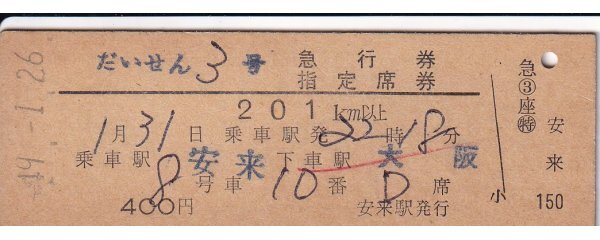 49.-1.26
だいせん3号 急行券
指定席券
201km以上
1月31日乗車駅発22時18分
乗車駅 安来 下車駅 大阪
8号車10番D席
400円 安来駅発行
小
急③座㊕
安来
150